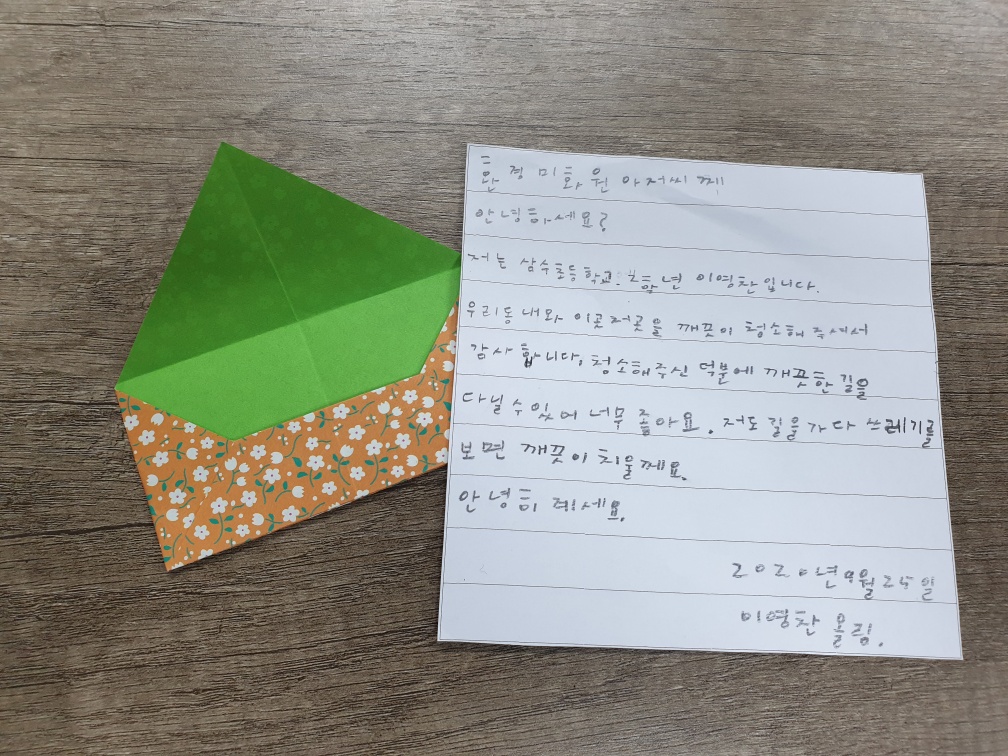 환경미화원 아저씨께
안녕하세요?
저는 삼수초등학교 학년 이영찬입니다.
우리동내와 이곳저곳을 깨끗이 청소해 주셔서
감사합니다. 청소해주신 덕분에 깨끗한 길을
다닐 수 있어 너무 좋아요. 저도 길을 가다 쓰레기를
보면 깨끗이 치울께요.
안녕히 계세요.
2020년 9월 25일
이영찬 올림.